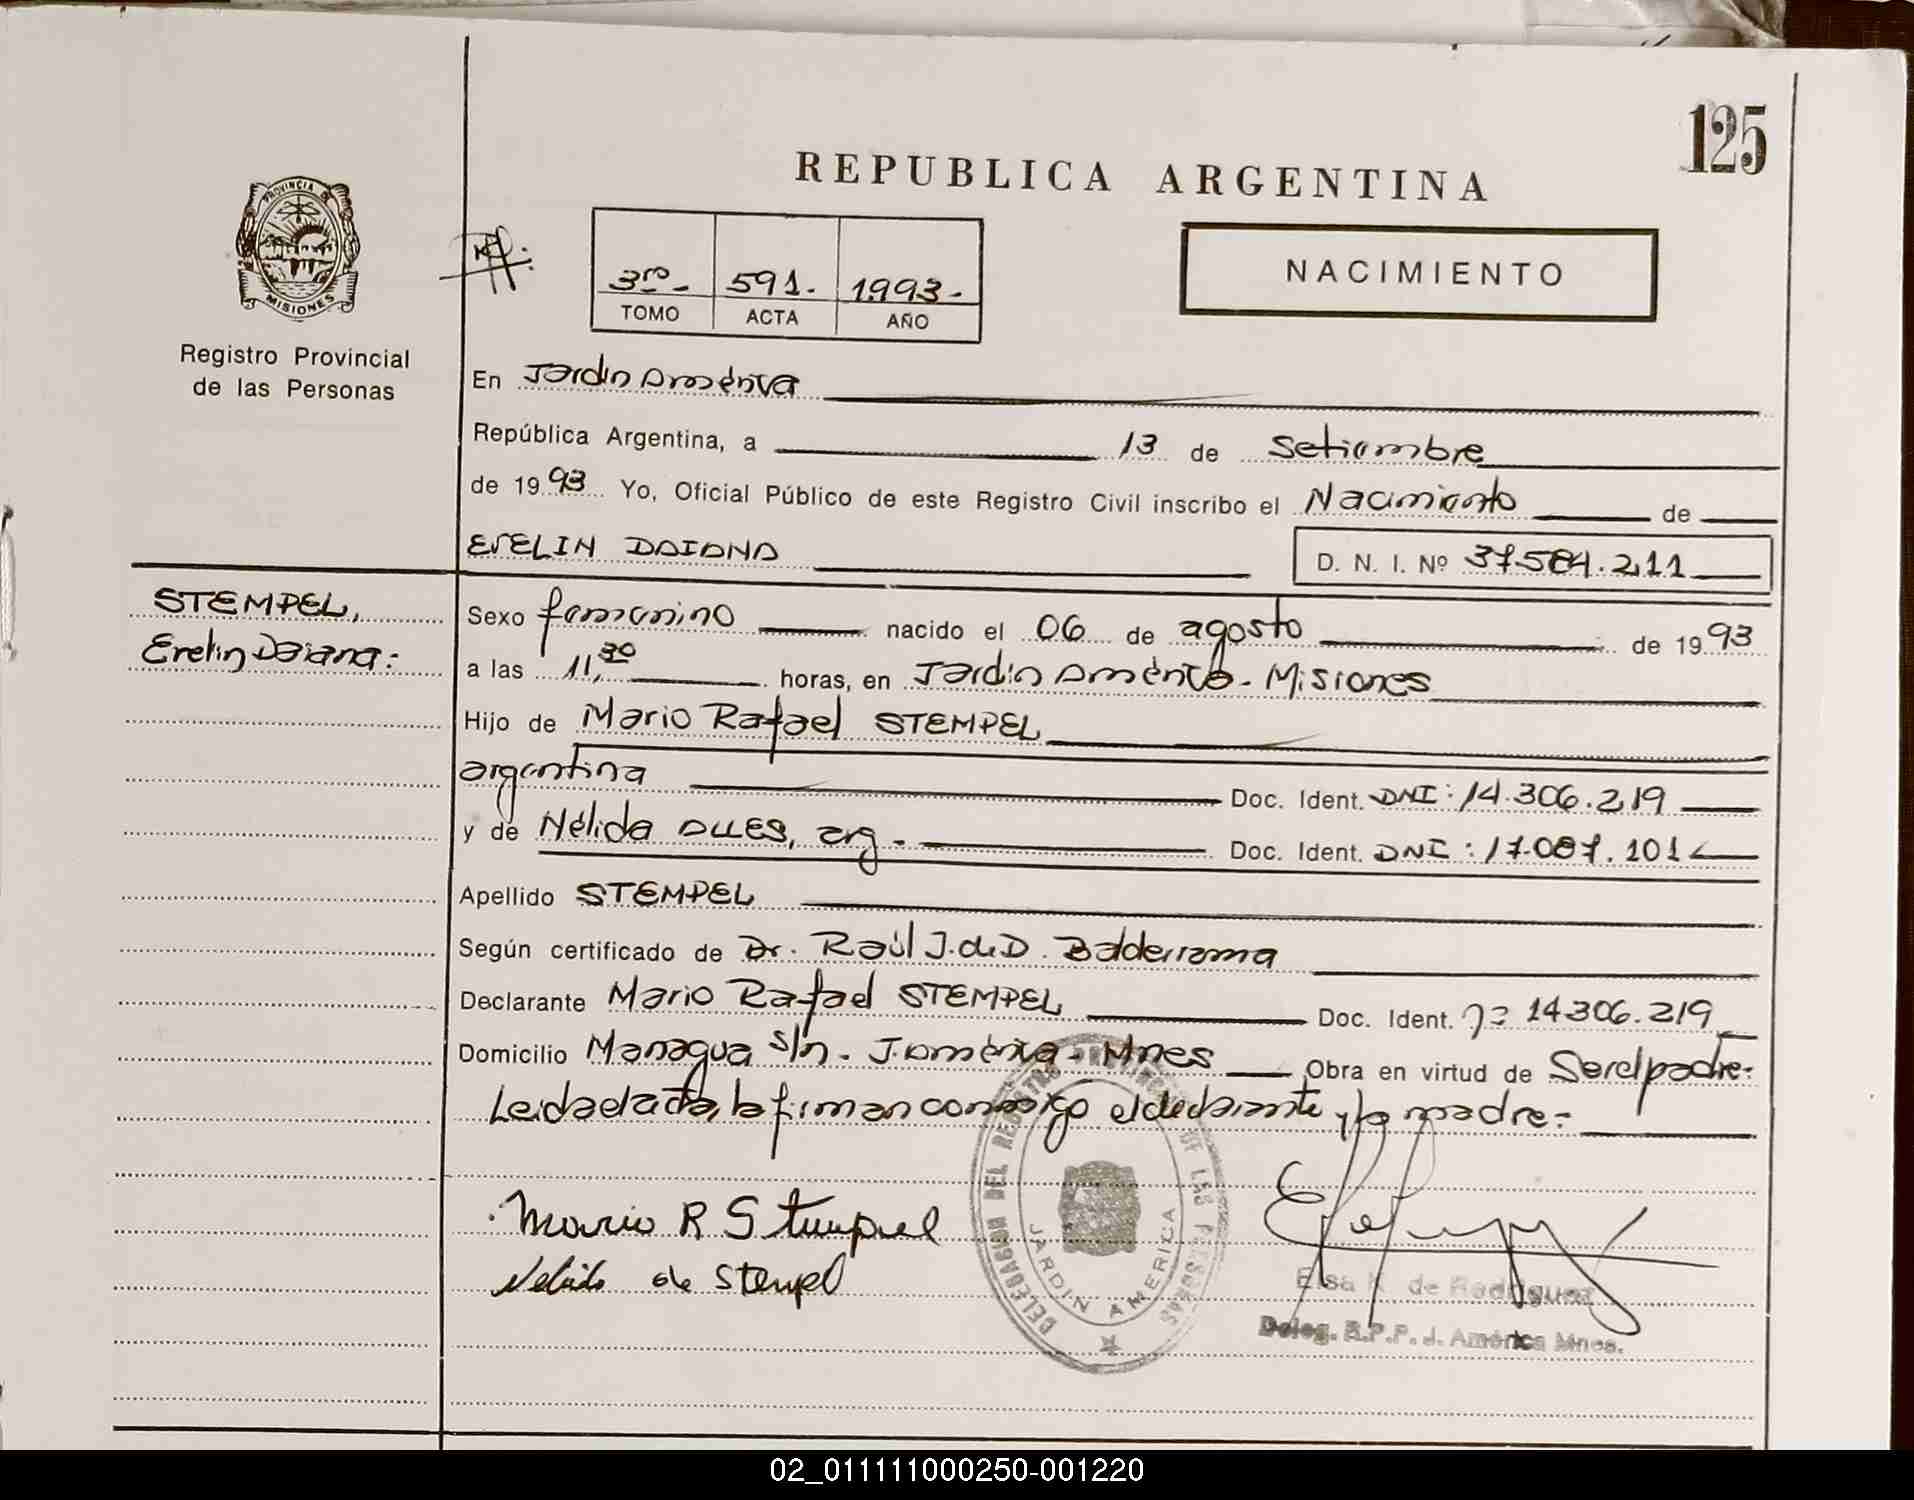 125
REPUBLICA ARGENTINA
PROVINCIA DE
MISIONES
3ro - 591. 1993.-
TOMO ACTA AÑO
NACIMIENTO
Registro Provincial
de las Personas
En Jardin América
República Argentina, a 13 de Setiembre
de 1993 Yo, Oficial Público de este Registro Civil inscribo el Nacimiento de
EVELIN DAIANA D. N. I. Nº 37.584.211
STEMPEL,
Evelin Daiana:
Sexo femenino nacido el 06 de agosto de 1993
a las 11,30 horas, en Jardin América - Misiones
Hijo de Mario Rafael STEMPEL
argentina Doc. Ident. DNI: 14.306.219
y de Nélida ALLES, arg. - Doc. Ident. DNI: 17.087.101
Apellido STEMPEL
Según certificado de Dr. Raúl J. de D. Balderrama
Declarante Mario Rafael STEMPEL Doc. Ident. 14306.219
Domicilio Managua s/n - J. América - Mnes Obra en virtud de Ser el padre-
Leida el acta, la firman conmigo el declarante y la madre:-
Mario R Stempel
Nelida de Stempel
DELEGACION DEL REGISTRO PROVINCIAL DE LAS PERSONAS
JARDIN AMERICA
Elsa K. de Rodriguez
Deleg. R.P.P. J. América Mnes.
02_011111000250-001220